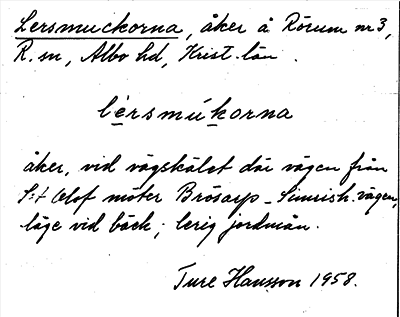 Lersmuckorna, åker å Rörum nr 3,
R. sn, Albo hd, Krist. län.
lérsmúkorna
åker, vid vägskälet där vägen från
S:t Olof möter Brösarp - Simrish. vägen,
läge vid bäck; lerig jordmån.
Ture Hansson 1958.